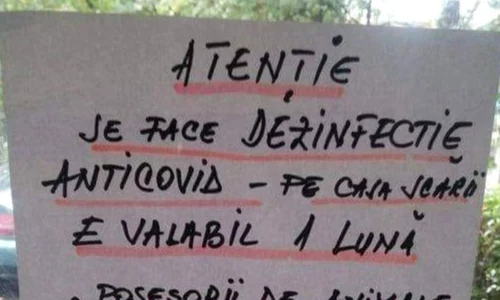 ATENȚIE
SE FACE DEZINFECTIE
ANTICOVID - PE CASA SCĂRII
E VALABIL 1 LUNĂ
. POSESORII DE ANIMALE